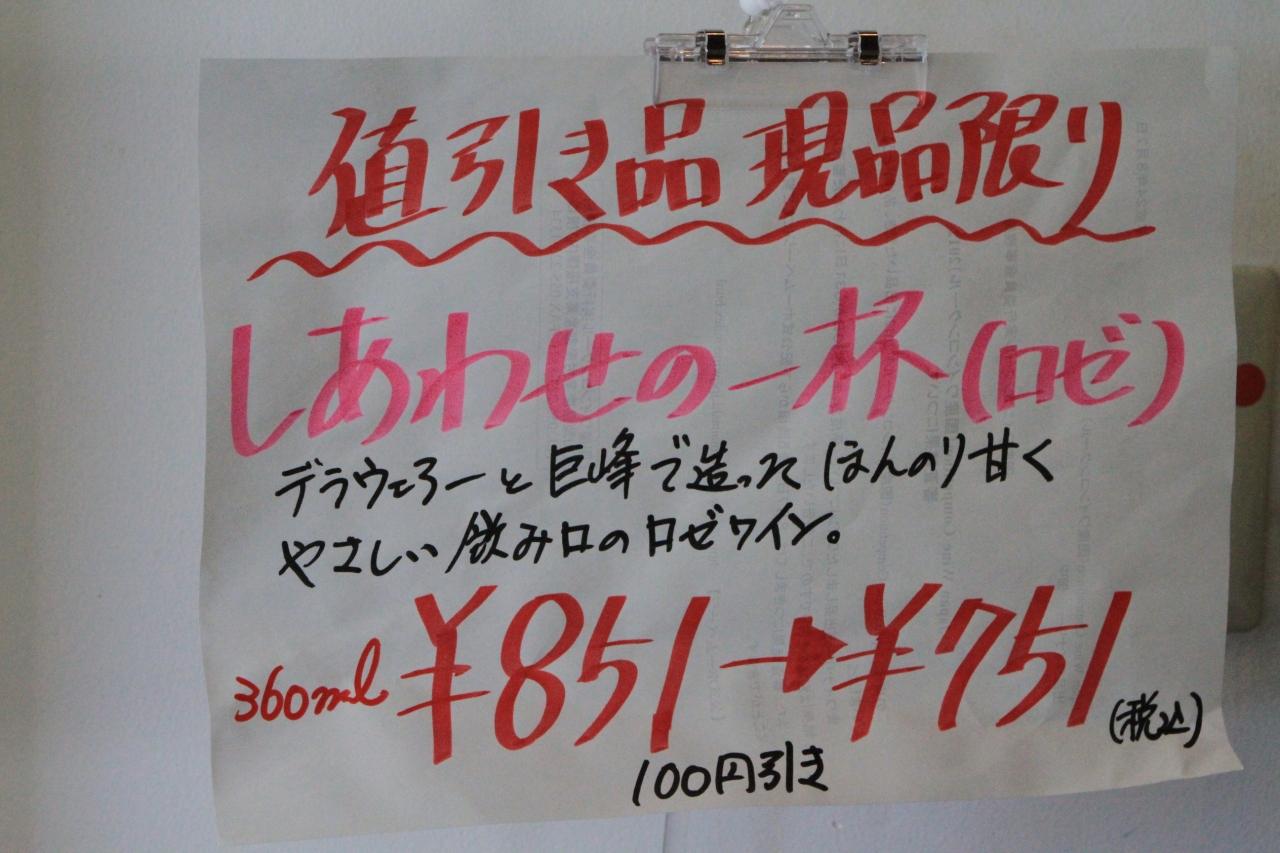 値引き品 現品限り
しあわせの一杯(ロゼ)
デラウェアーと巨峰で造って ほんのり甘く
やさしい飲み口のロゼワイン。
360ml ¥851→¥751 (税込)
100円引き